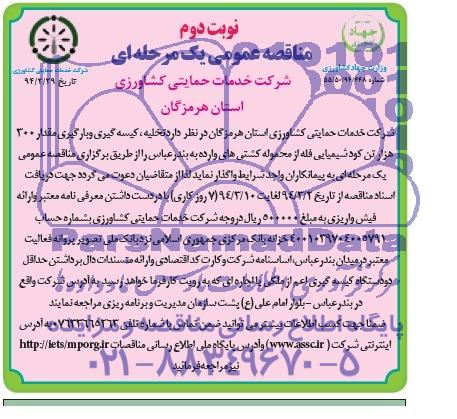 نوبت دوم
مناقصه عمومی یک مرحله ای
شرکت خدمات حمایتی کشاورزی
استان هرمزگان
وزارت جهاد کشاورزی
شرکت خدمات حمایتی کشاورزی
تاریخ ۹۴/۲/۲۹
شرکت خدمات حمایتی کشاورزی استان هرمزگان در نظر دارد تخلیه، کیسه گیری و بارگیری مقدار ۳۰۰
هزار تن کود شیمیایی فله از محموله کشتی های وارده به بندرعباس را از طریق برگزاری مناقصه عمومی
یک مرحله ای به پیمانکاران واجد شرایط واگذار نماید لذا از متقاضیان دعوت می گردد جهت دریافت
اسناد مناقصه از تاریخ ۹۴/۳/۲ لغایت ۹۴/۳/۱۰ (۷ روز کاری) با در دست داشتن معرفی نامه معتبر و ارائه
فیش واریزی به مبلغ ۵۰۰۰۰۰ ریال در وجه شرکت خدمات حمایتی کشاورزی بشماره حساب
۴۰۰۱۰۳۹۷۰۴۰۰۵۷۹۱ خزانه بانک مرکزی جمهوری اسلامی نزد بانک ملی تصویر پروانه فعالیت
معتبر در میدان بندرعباس، اساسنامه شرکت و کارت کد اقتصادی و ارائه مستندات دال بر داشتن حداقل
دو دستگاه کیسه گیری اعم از ملکی یا اجاره ای که به رویت کارفرما خواهد رسید به آدرس شرکت واقع
در بندرعباس - بلوار امام علی (ع) پشت سازمان مدیریت و برنامه ریزی مراجعه نمایند
ضمنا جهت کسب اطلاعات بیشتر می توانید ضمن تماس با شماره تلفن ۰۷۶۳۳۶۶۵۳۶۲ به آدرس
اینترنتی شرکت (www.assc.ir) و آدرس پایگاه ملی اطلاع رسانی مناقصات http://iets/mporg.ir
نیز مراجعه فرمائید
۰۲۱-۸۸۳۴۹۶۷۰-۵